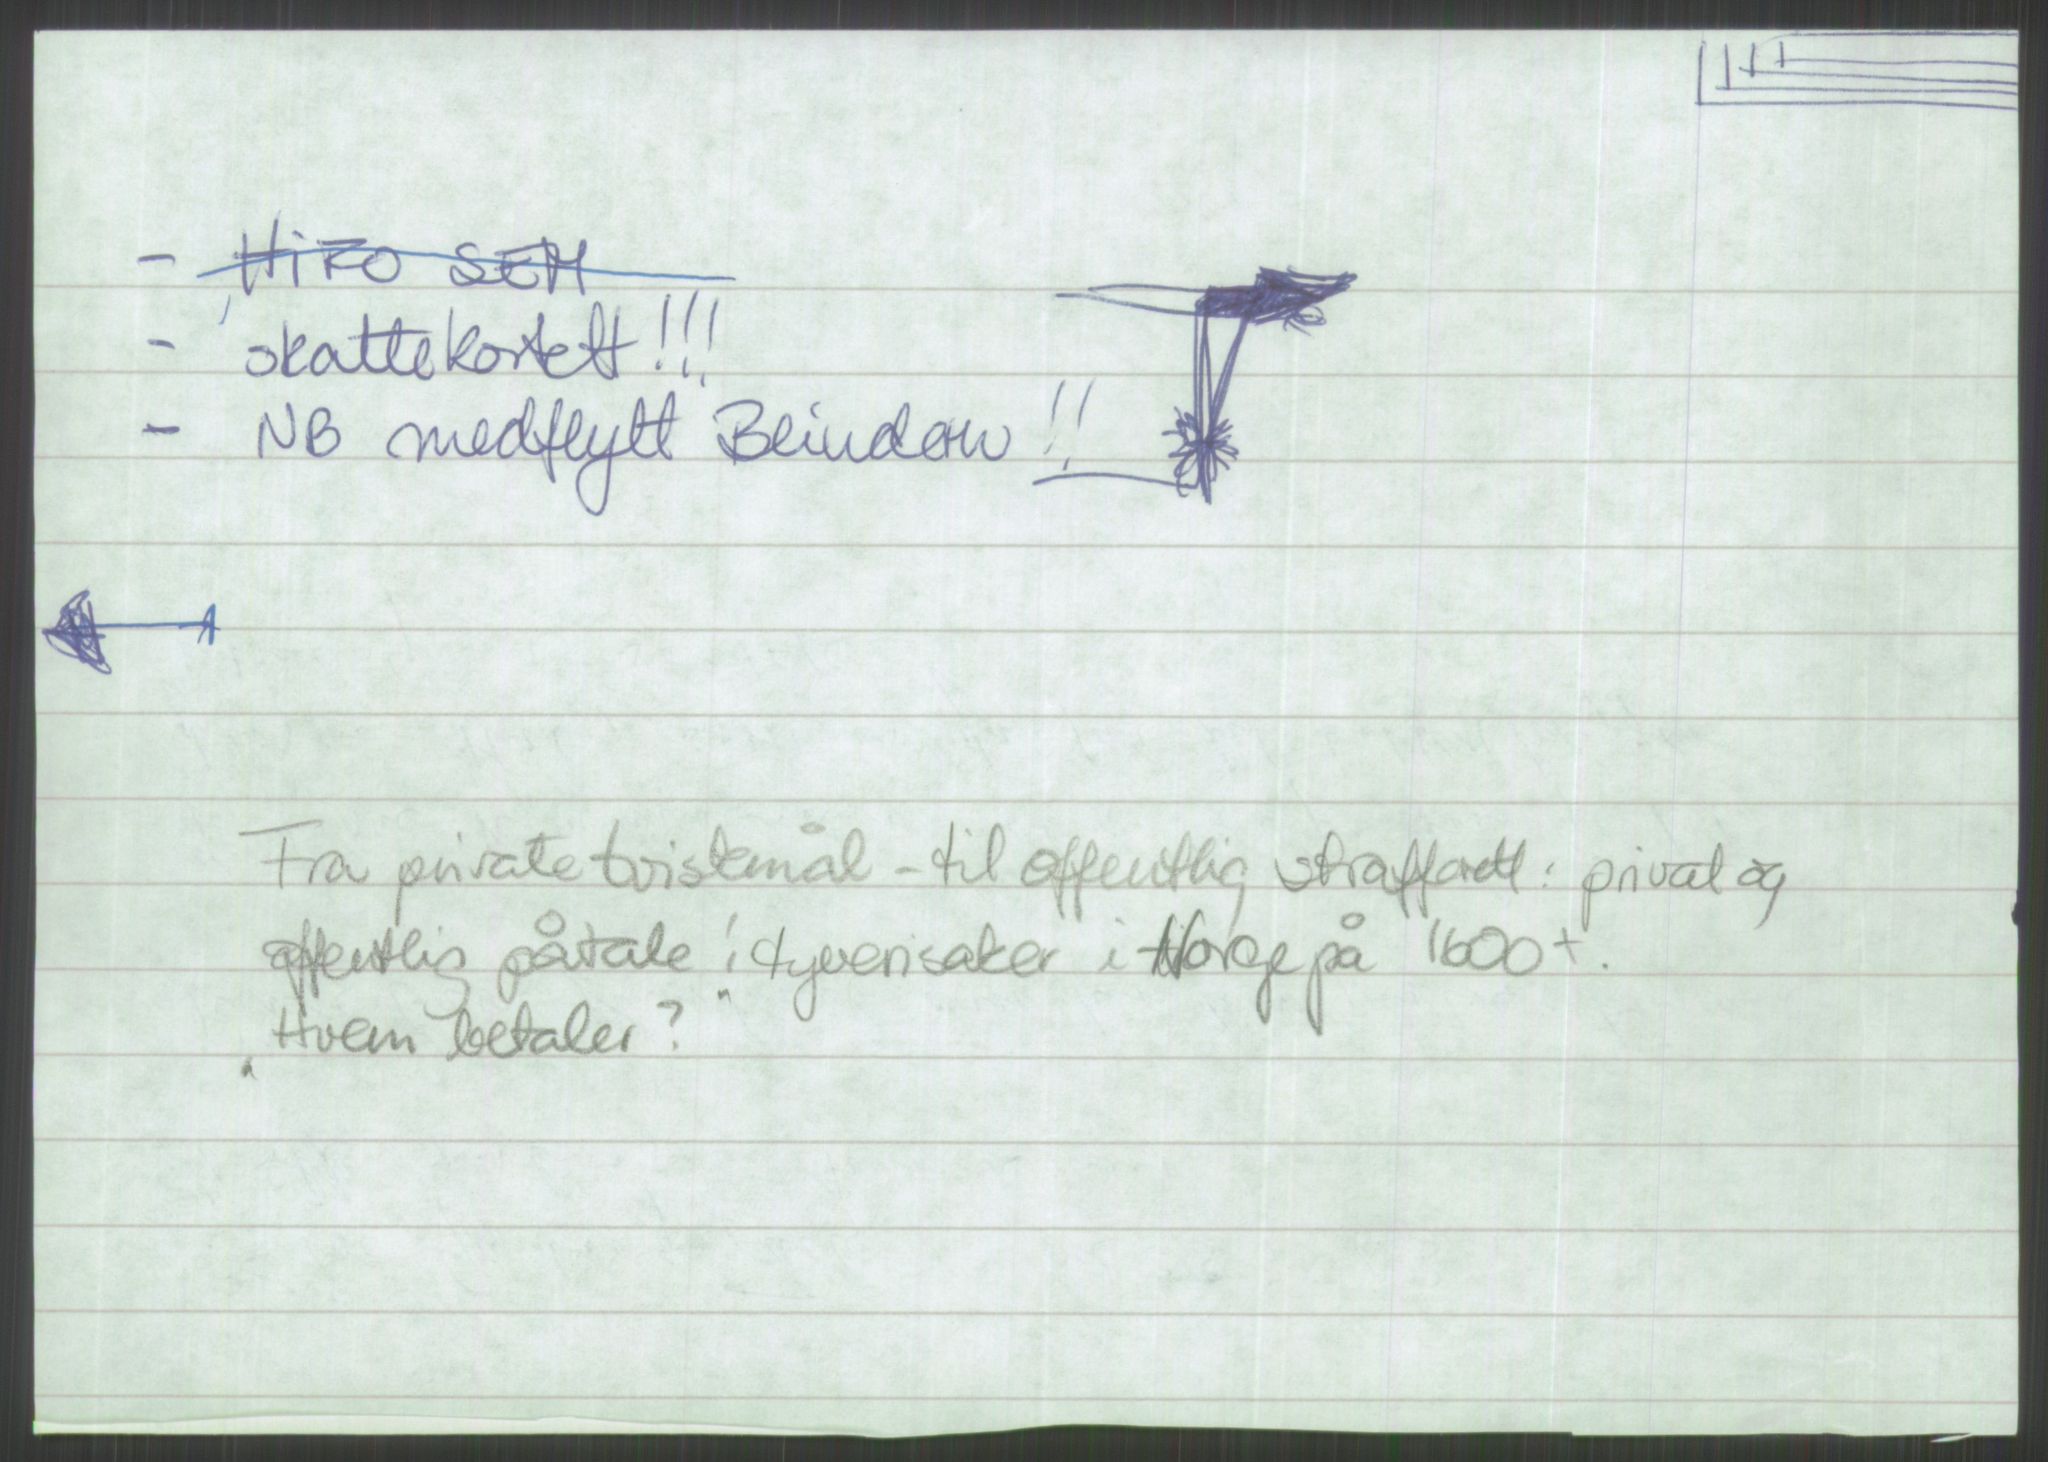 - HiFO SEM
- skattekortett!!!
- NB medflytt Blindern!!
Fra private tvistemål - til offentlig strafferett: privat og
offentlig påtale i tyverisaker i Norge på 1600 t.
Hvem betaler?